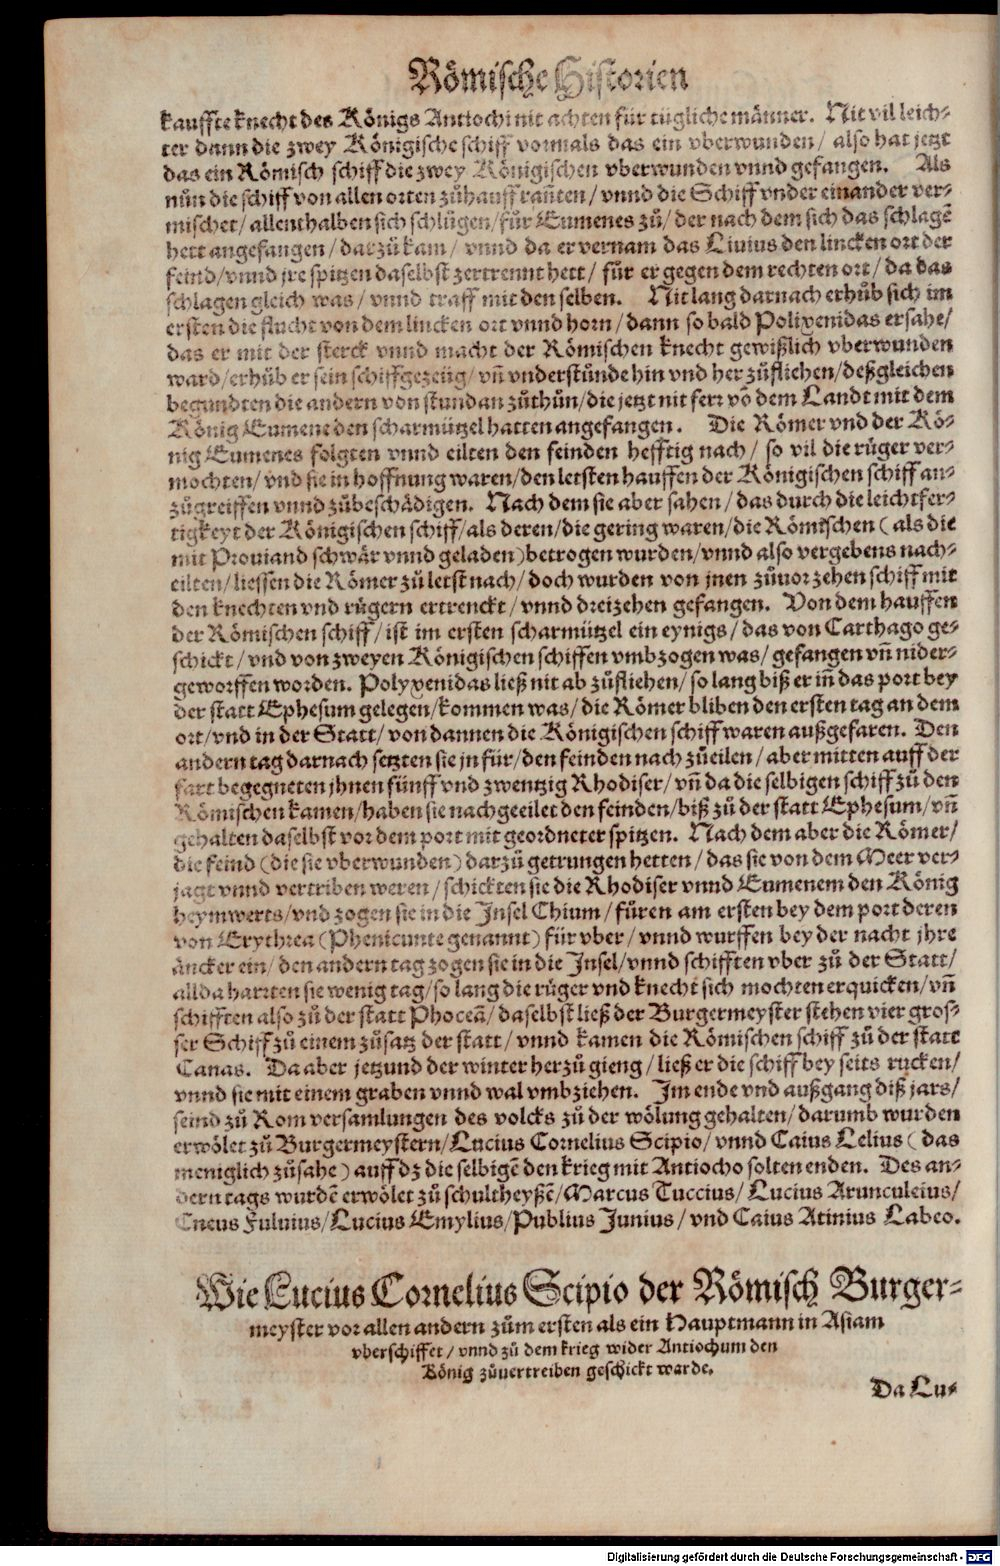 Römische Historien
kauffte knecht des Königs Antiochi nit achten für tügliche männer. Nit vil leich-
ter dann die zwey Königische schiff vormals das ein vberwunden/ also hat jetzt
das ein Römisch schiff die zwey Königischen vberwunden vnnd gefangen. Als
nůn die schiff von allen orten zůhauff rañten/ vnnd die Schiff vnder einander ver-
mischet/ allenthalben sich schlůgen/ fůr Eumenes zů/ der nach dem sich das schlagẽ
hett angefangen/ darzů kam/ vnnd da er vernam das Liuius den lincken ort der
feind/ vnnd jre spitzen daselbst zertrennt hett/ fůr er gegen dem rechten ort/ da das
schlagen gleich was/ vnnd traff mit den selben. Nit lang darnach erhůb sich im
ersten die flucht von dem lincken ort vnnd horn/ dann so bald Polixenidas ersahe/
das er mit der sterck vnnd macht der Römischen knecht gewißlich vberwunden
ward/ erhůb er sein schiffgezeüg/ vñ vnderstůnde hin vnd her zůfliehen/ deßgleichen
begundten die andern von stund an zůthůn/ die jetzt nit ferr võ dem Landt mit dem
König Eumene den scharmützel hatten angefangen. Die Römer vnd der Kö-
nig Eumenes folgten vnnd eilten den feinden hefftig nach/ so vil die růger ver-
mochten/ vnd sie in hoffnung waren/ den letsten hauffen der Königischen schiff an-
zůgreiffen vnnd zůbeschädigen. Nach dem sie aber sahen/ das durch die leichtfer-
tigkeyt der Königischen schiff/ als deren/ die gering waren/ die Römischen (als die
mit Prouiand schwär vnnd geladen) betrogen wurden/ vnnd also vergebens nach-
eilten/ liessen die Römer zů letst nach/ doch wurden von jnen zůuor zehen schiff mit
den knechten vnd růgern ertrenckt/ vnnd dreizehen gefangen. Von dem hauffen
der Römischen schiff/ ist im ersten scharmützel ein eynigs/ das von Carthago ge-
schickt/ vnd von zweyen Königischen schiffen vmbzogen was/ gefangen vñ nider-
geworffen worden. Polyxenidas ließ nit ab zůfliehen/ so lang biß er iñ das port bey
der statt Ephesum gelegen/ kommen was/ die Römer bliben den ersten tag an dem
ort/ vnd in der Statt/ von dannen die Königischen schiff waren außgefaren. Den
andern tag darnach setzten sie jn für/ den feinden nach zůeilen/ aber mitten auff der
fart begegneten jhnen fünff vnd zwentzig Rhodiser/ vñ da die selbigen schiff zů den
Römischen kamen/ haben sie nachgeeilet den feinden/ biß zů der statt Ephesum/ vñ
gehalten daselbst vor dem port mit geordneter spitzen. Nach dem aber die Römer/
die feind (die sie vberwunden) darzů getrungen hetten/ das sie von dem Meer ver-
jagt vnnd vertriben weren/ schickten sie die Rhodiser vnnd Eumenem den König
heymwerts/ vnd zogen sie in die Jnsel Chium/ fůren am ersten bey dem port deren
von Erythrea (Phenicunte genannt) für vber/ vnnd wurffen bey der nacht jhre
äncker ein/ den andern tag zogen sie in die Jnsel/ vnnd schifften vber zů der Statt/
allda harrten sie wenig tag/ so lang die růger vnd knecht sich mochten erquicken/ vñ
schifften also zů der statt Phoceã/ daselbst ließ der Burgermeyster stehen vier gros-
ser Schiff zů einem zůsatz der statt/ vnnd kamen die Römischen schiff zů der statt
Canas. Da aber jetzund der winter herzů gieng/ ließ er die schiff bey seits rucken/
vnnd sie mit einem graben vnnd wal vmbziehen. Jm ende vnd außgang diß jars/
seind zů Rom versamlungen des volcks zů der wölung gehalten/ darumb wurden
erwölet zů Burgermeystern/ Lucius Cornelius Scipio/ vnnd Caius Lelius (das
meniglich zůsahe) auff dz die selbigẽ den krieg mit Antiocho solten enden. Des an-
dern tags wurdẽ erwölet zů schultheyßẽ/ Marcus Tuccius/ Lucius Arunculeius/
Cneus Fuluius/ Lucius Emylius/ Publius Junius/ vnd Caius Atinius Labeo.
Wie Lucius Cornelius Scipio der Römisch Burger-
meyster vor allen andern zům ersten als ein Hauptmann in Asiam
vberschiffet/ vnnd zů dem krieg wider Antiochum den
König zůuertreiben geschickt warde.
Da Lu-
Digitalisierung gefördert durch die Deutsche Forschungsgemeinschaft - DFG